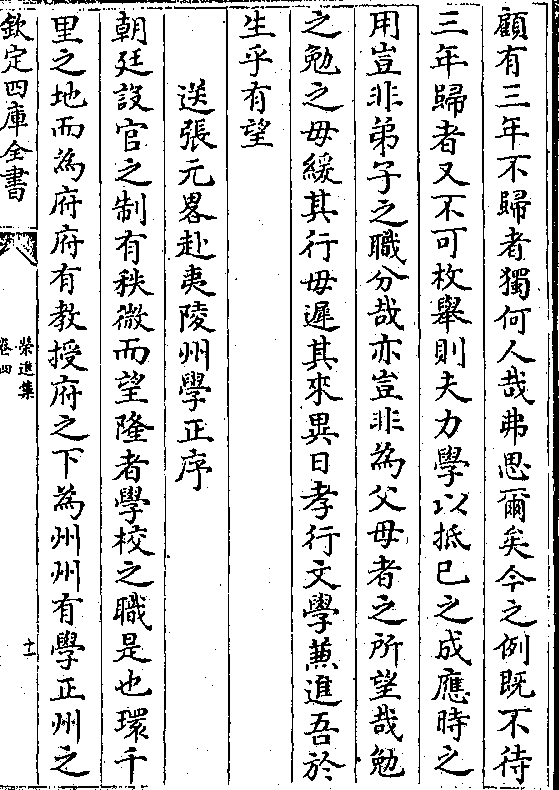 顧有三年不歸者獨何人哉弗思爾矣今之例既不待
三年歸者又不可枚舉則夫力學以抵已之成應時之
用豈非弟子之職分哉亦豈非為父母者之所望哉勉
之勉之毋緩其行毋遲其來異日孝行文學蕪進吾於
生乎有望
送張元畧赴夷陵州學正序
朝廷設官之制有秩微而望隆者學校之職是也環千
里之地而為府府有教授府之下為州州有學正州之
欽定四庫全書
榮進集
卷四
十一